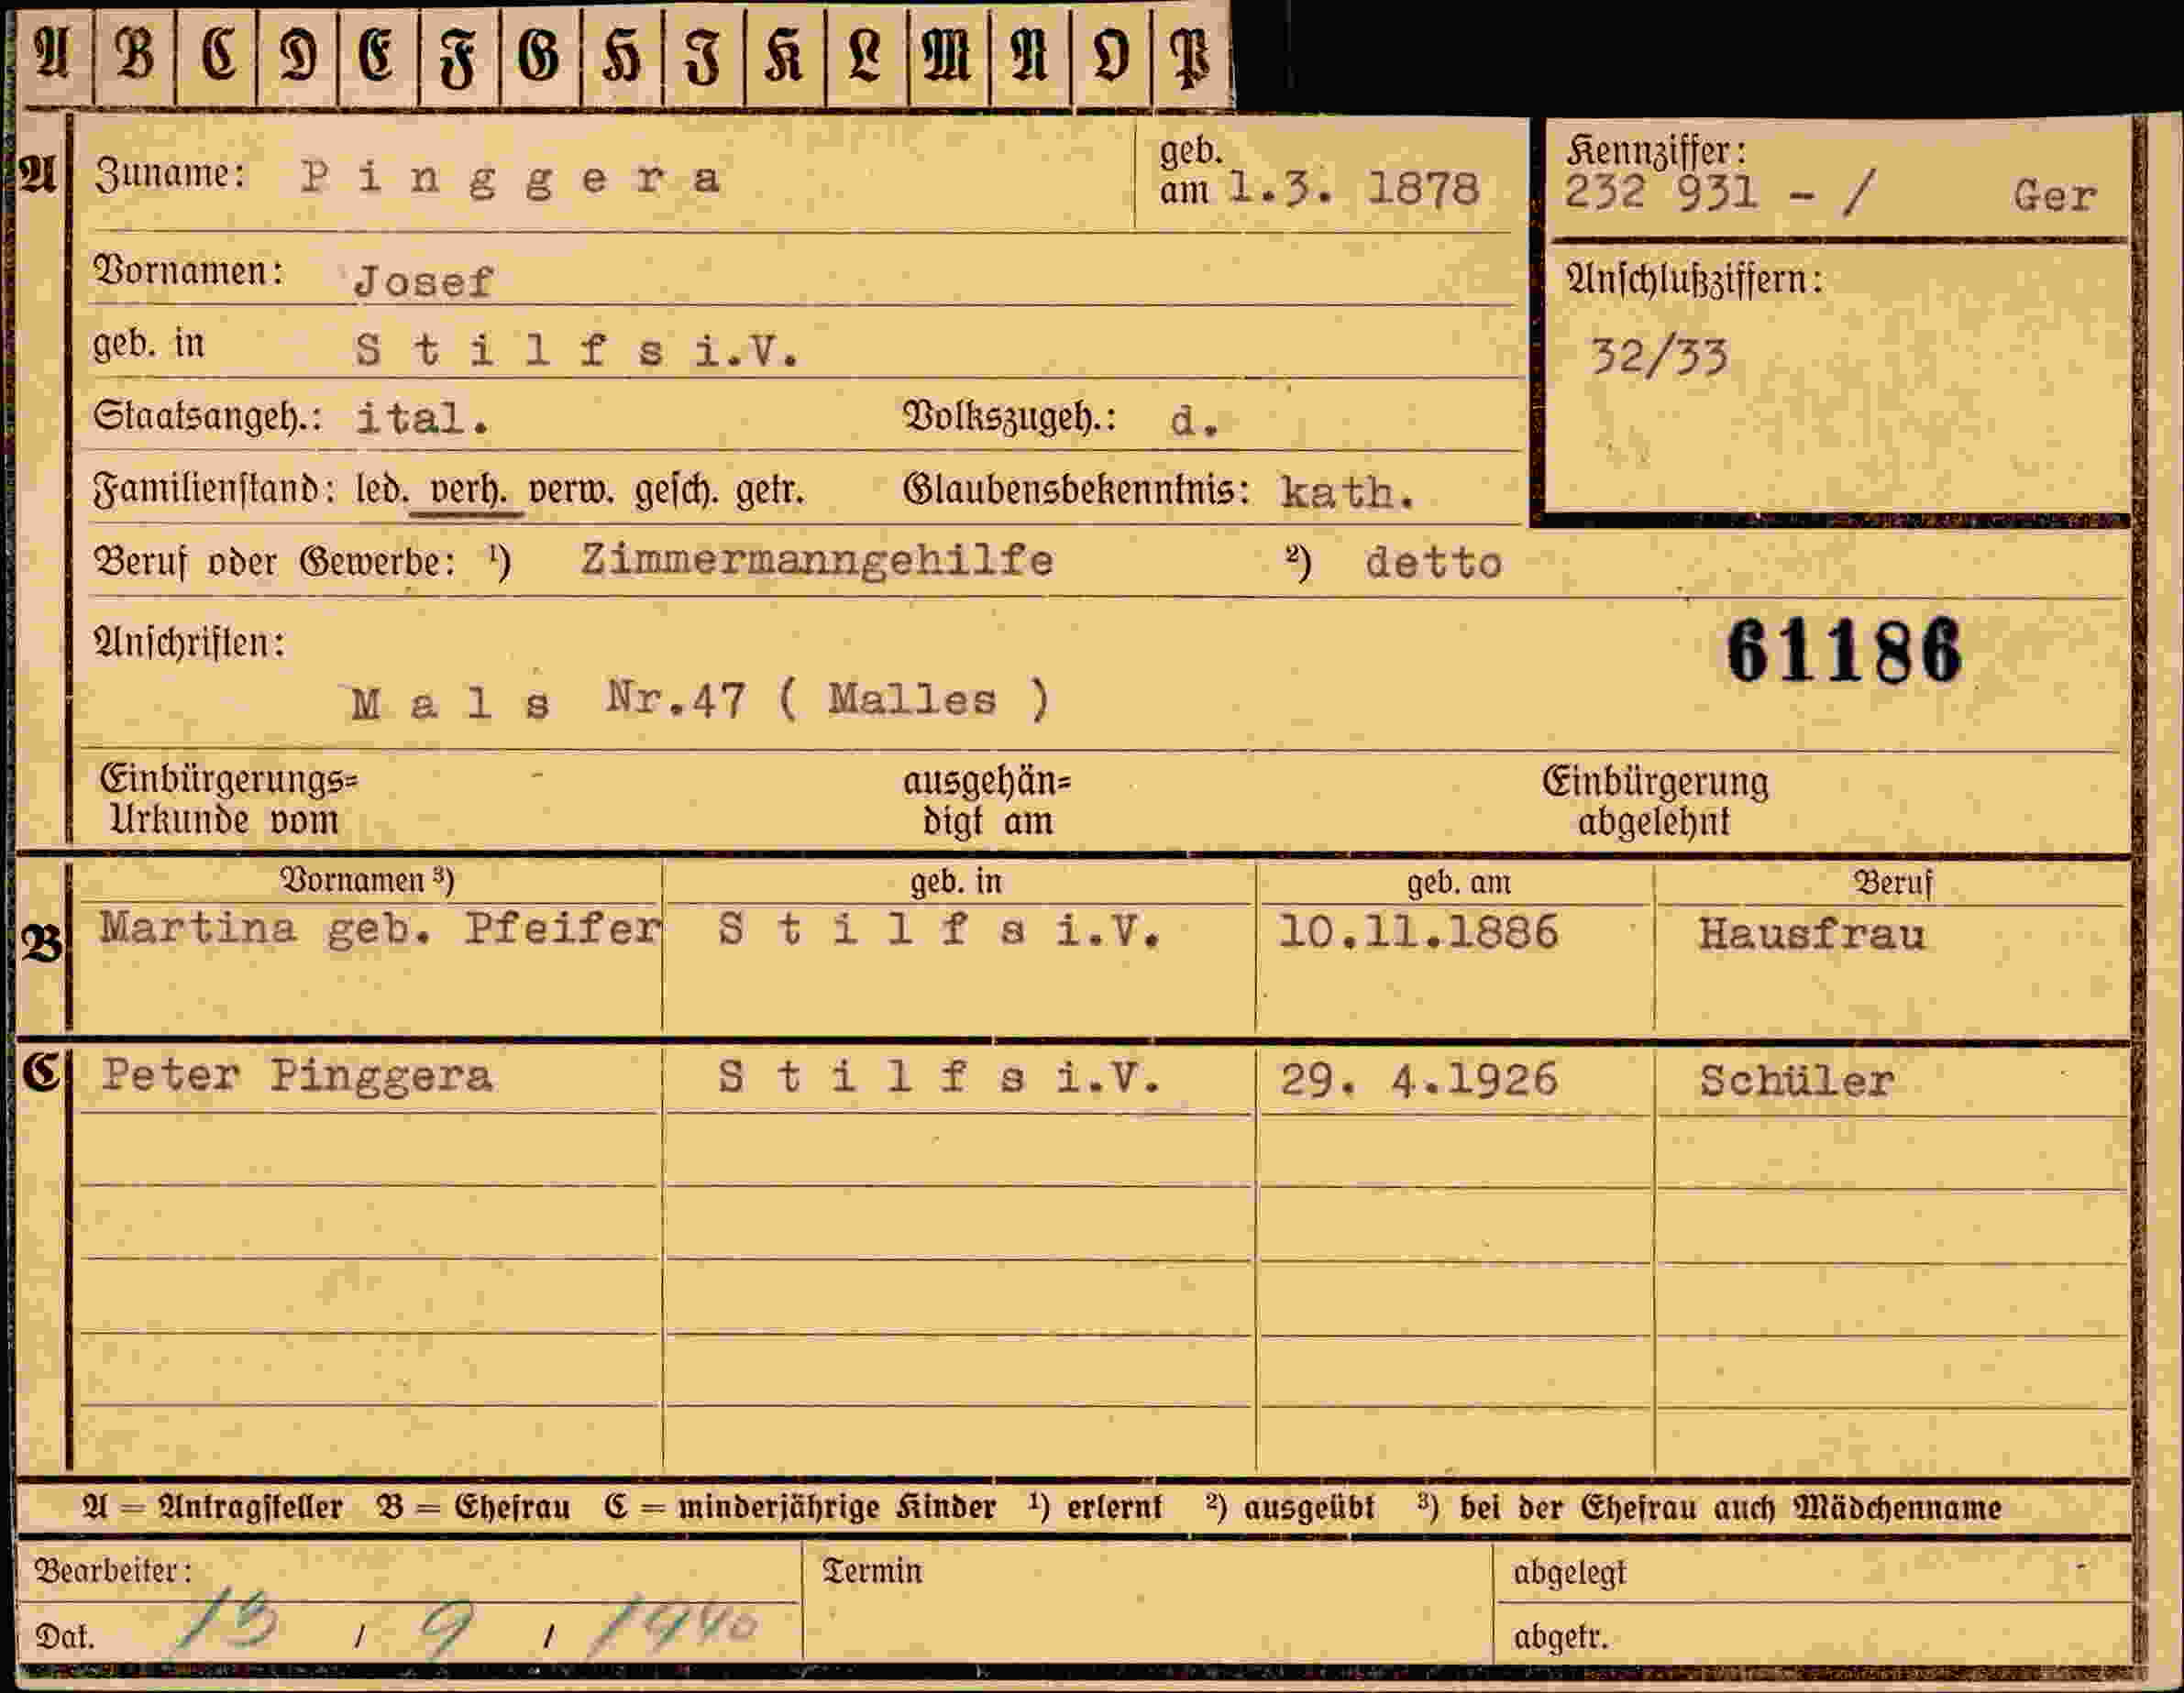 A B C D E F G H I K L M N O P
A Zuname: P i n g g e r a geb. am 1.3. 1878
Kennziffer:
232 931 - / Ger
Vornamen: Josef
Anschlußziffern:
32/33
geb. in S t i l f s i.V.
Staatsangeh.: ital. Volkszugeh.: d.
Familienstand: led. verh. verw. gesch. getr. Glaubensbekenntnis: kath.
Beruf oder Gewerbe: ¹) Zimmermanngehilfe ²) detto
Anschriften:
61186
M a l s Nr.47 ( Malles )
Einbürgerungs= ausgehän= Einbürgerung
Urkunde vom digt am abgelehnt
Vornamen ³) geb. in geb. am Beruf
B Martina geb. Pfeifer S t i l f s i.V. 10.11.1886 Hausfrau
C Peter Pinggera S t i l f s i.V. 29. 4.1926 Schüler
A = Antragsteller B = Ehefrau C = minderjährige Kinder ¹) erlernt ²) ausgeübt ³) bei der Ehefrau auch Mädchenname
Bearbeiter: Termin abgelegt
Dat. 13 / 9 / 1940 abgetr.